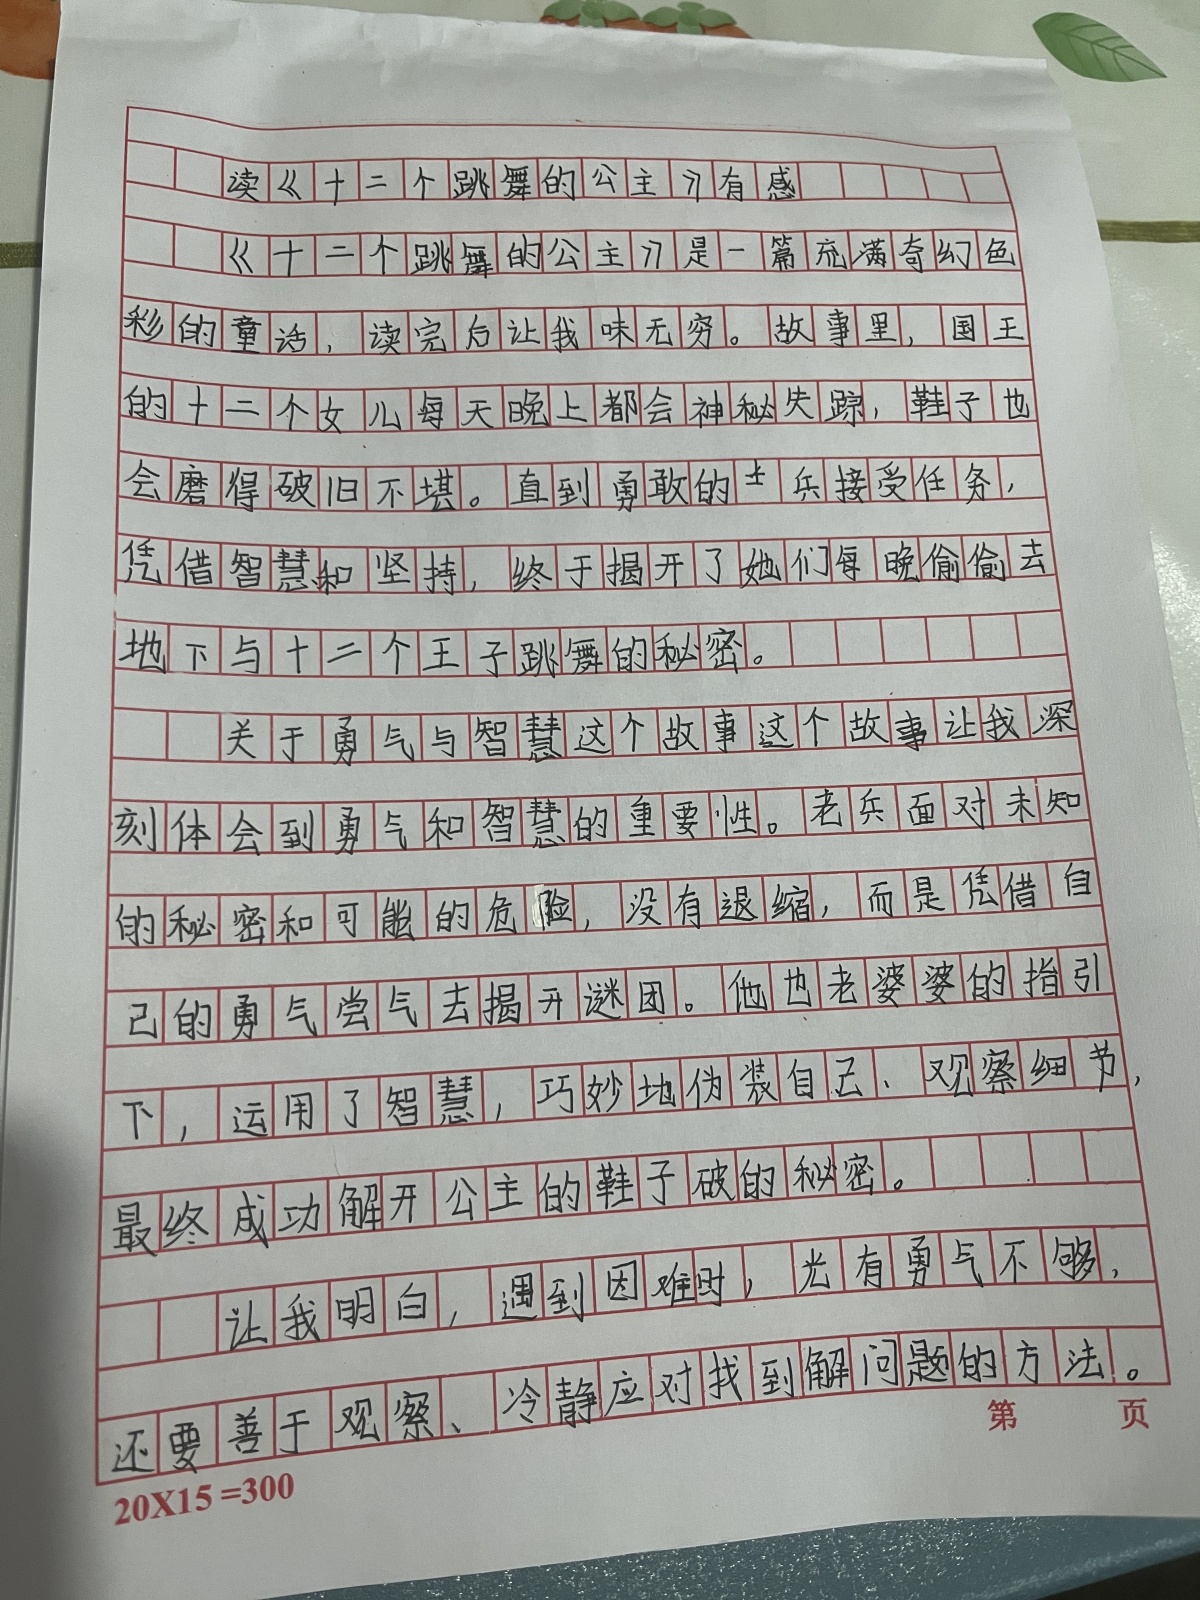 读《十二个跳舞的公主》有感
《十二个跳舞的公主》是一篇充满奇幻色
彩的童话，读完后让我味无穷。故事里，国王
的十二个女儿每天晚上都会神秘失踪，鞋子也
会磨得破旧不堪。直到勇敢的士兵接受任务，
凭借智慧和坚持，终于揭开了她们每晚偷偷去
地下与十二个王子跳舞的秘密。
关于勇气与智慧这个故事这个故事让我深
刻体会到勇气和智慧的重要性。老兵面对未知
的秘密和可能的危险，没有退缩，而是凭借自
己的勇气尝气去揭开谜团。他也老婆婆的指引
下，运用了智慧，巧妙地伪装自己、观察细节，
最终成功解开公主的鞋子破的秘密。
让我明白，遇到因难时，光有勇气不够，
还要善于观察、冷静应对找到解问题的方法。
第 页
20X15=300